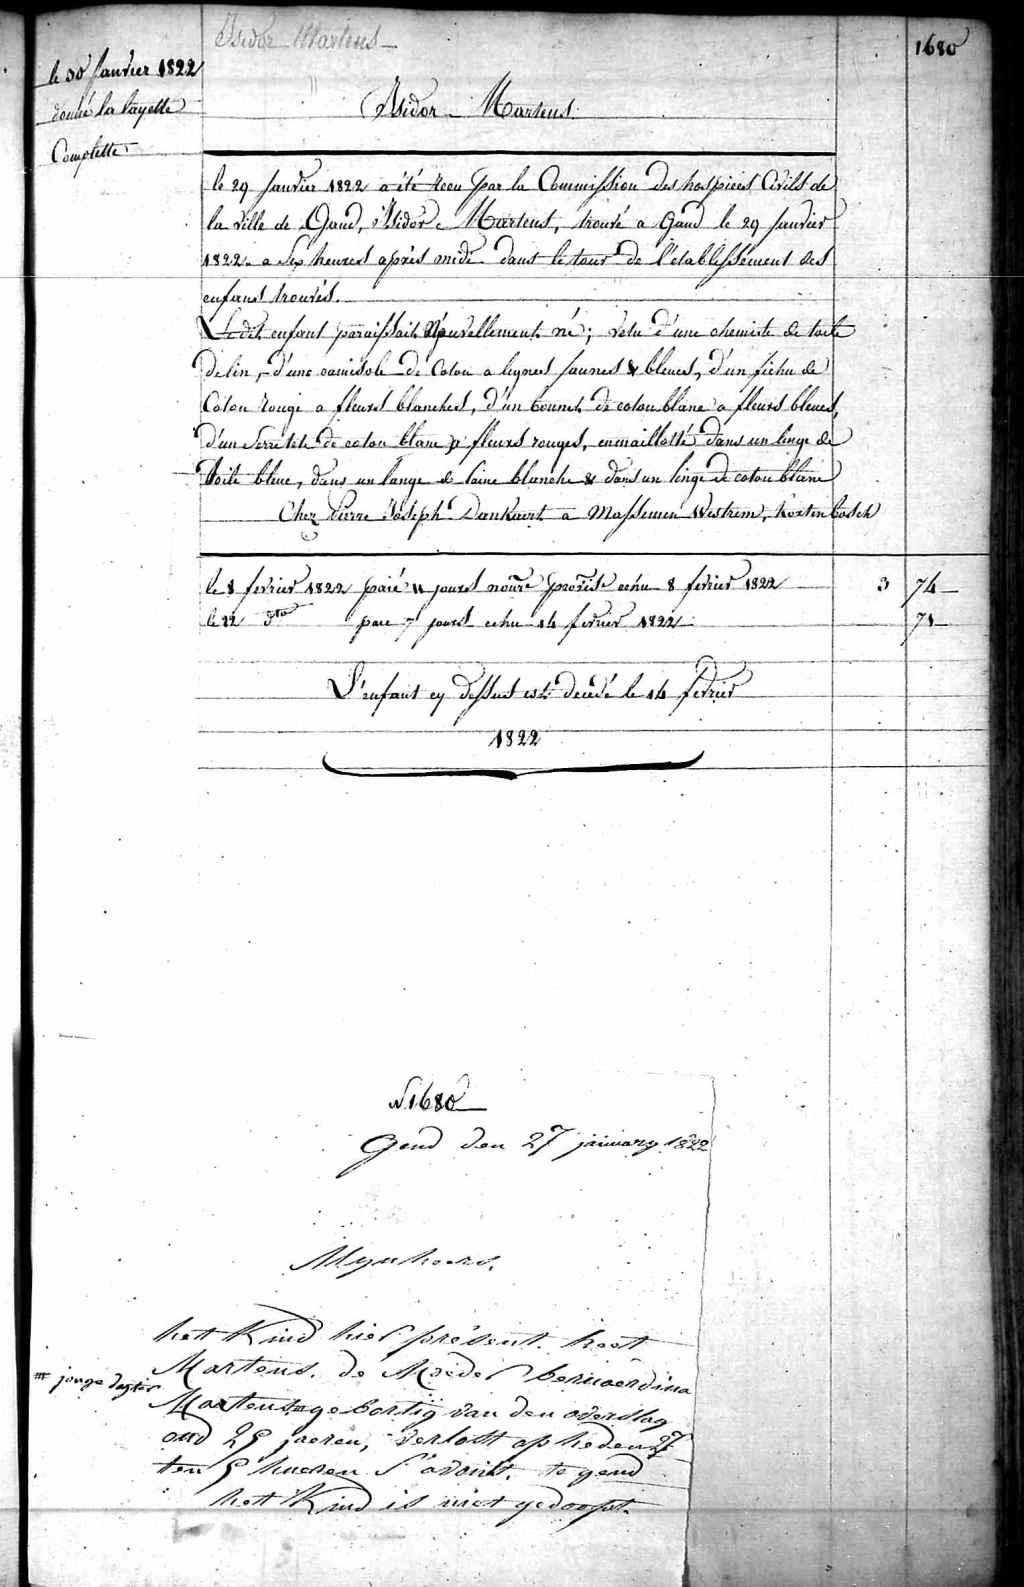 Isidor Martens
1680
le 30 Janvier 1822
donné la layette
Complette
Isidor Martens
le 29 Janvier 1822 a été recu par la Commission des hospices Civils de
la ville de Gand, Isidor Martens, trouvé a Gand le 29 Janvier
1822 a Six heures après midi dans le tour de l'etablissement des
enfans trouvés.
Ledit enfant paraissait Nouvellement né; vetu d'une chemise de toile
de lin, d'une camisole de Coton a lignes Jaunes & bleues, d'un fichu de
Coton rouge a fleurs blanches, d'un bonnet de coton blanc a fleurs bleues,
d'un Serre tete de coton blanc a fleurs rouges, enmaillotté dans un linge de
toile bleue, dans un lange de laine blanche & dans un linge de coton blanc
Chez Pierre Joseph Dankaert a Massemen Westrem, kortenbosch
le 8 fevrier 1822 paié 11 jours nourre provise echu 8 fevrier 1822 3 74
le 22 dto paie 7 jours echu 14 fevrier 1822 71
L'enfant cy dessus est decedé le 14 fevrier
1822
N 1680
Gend den 27 january 1822
Mynheers.
hett Kind hier présent. heet
Martens. de Moeder bernaerdina
jonge dogter
Martens gebortig van den overslag
oud 25 jaeren, verlost op heden 27
ten 5 hueren S'avonts. te gend
hett Kind is niet gedoopt.